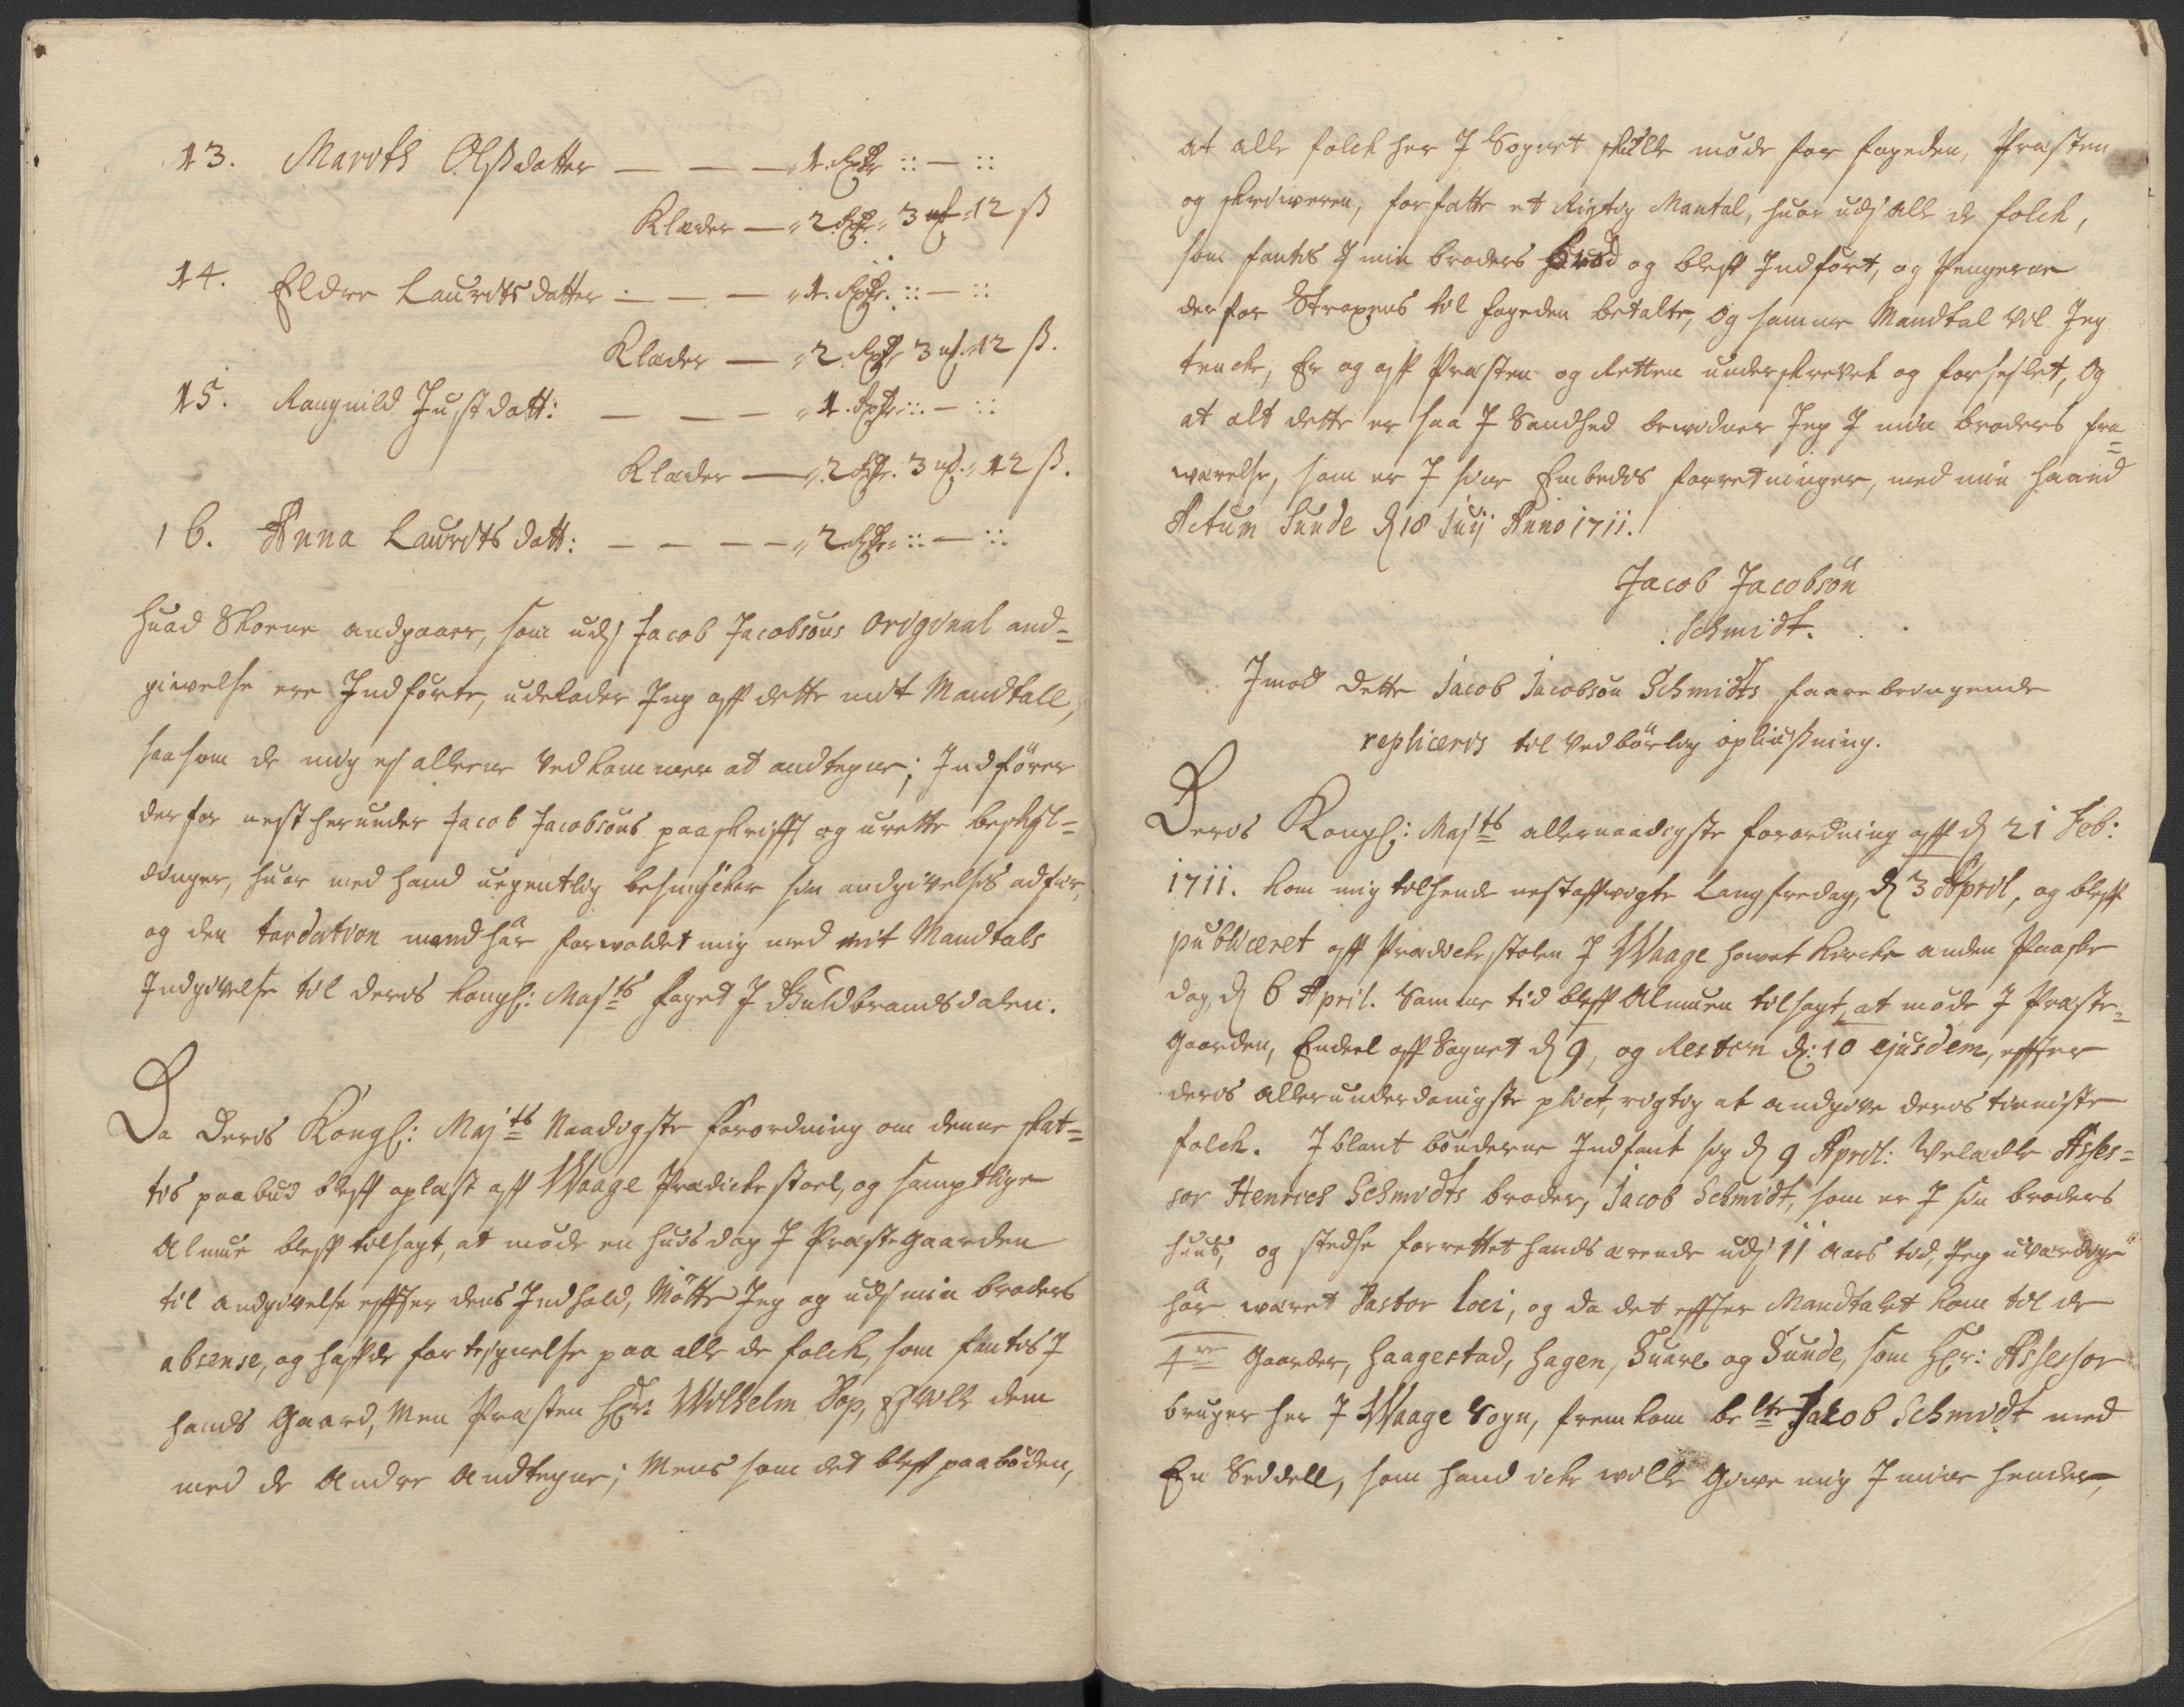 13. Maroth Olßdatter — — — „1. Rdr :: — ::
Klæder — „2 Rdr. 3 mk „12 ß
14. Eldre Lauridts datter — — — „1. Rdr. :: — ::
Klæder — „2. Rdr 3 mk. „12 ß.
15. Rangnild Justdatt: — — — „1. Rdr :: — ::
Klæder — „2 Rdr. 3 mk. „12 ß.
16. Anna Lauridts datt: — — — — „2 Rdr :: — ::
Huad Skoene andgaaer, som udj Jacob Jacobsøns Original and=
givelse ere Indførte, udelader Jeg aff dette mit Mandtall,
saasom de mig ej alleene vedkommer at andtegne; Indfører
derfor nest herunder Jacob Jacobsøns paaskrifft og urette beskyl=
dinger, huor med hand uegentlig besmÿcker sin andgivelsis adfær,
og den tardation mand har forvoldet mig med mit Mandtals
Indgivelse til deris Kongl: Majts foget J Guldbrandsdalen.
Da Deris Kongl: Majts Naadigste Forordning om denne skat=
tis paabud bleff oplæst aff Waage Prædicke stoel, og samptlige
Almue bleff tilsagt, at møde en huus dag J Præstegaarden
til andgivelse effter dens Indhold, Mötte Jeg og udj min broders
absense, og haffde fortejgnelse paa alle de folck, som fantis J
hands Gaard, Men Præsten Hr: Wilhelm Dop, Ej ville dem
med de Andre Andtegne; Mens som det bleff paabøden,
at alle folck her J Sognet skulle møde for fogeden, Præsten
og skriiveren, forfatte et Rigtig Mantal, huor udj alle de folck,
som fantes J min broders brød og bleff Indført, og Pengerne
derfor Straxens til fogeden betalte, Og samme Mandtal vil Jeg
tencke, Er og aff Præsten og Retten underskrevet og forseglet, Og
at alt dette er saa J Sandhed bevidner Jeg J min broders fra=
værelse, som er J sine Embedis forretninger, med min haand
Actum Sunde d 18 Juij Anno 1711.
Jacob Jacobsøn
Schmidt.
Jmod dette Jacob Jacobsøn Schmidts faarebringende
repliceris til vedbørlig opliußning.
Deris Kongl: Majts allernaadigste forordning aff d 21 Feb:
1711. kom mig tilhende nestaffvigte Langfredag, d 3 April, og bleff
publiceret aff Prædicke stolen J Waage hovet kircke anden Paaske
dag, d 6 April. Samme tid bleff Almuen tilsagt, at møde J Præste=
Gaarden, Endeel aff Sognet d 9, og Resten d: 10 ejusdem, effter
deris allerunderdanigste plict, rigtig at andgive deris tieniste
folck. Jblant bønderne Indfant sig d 9 April: Velædle Asses=
sor Henrich Schmidts broder, Jacob Schmidt, som er J sin broders
huus, og stedse forrettet hands ærende udj 11 Aars tid, Jeg uværdige
här været Pastor loci, og da det effter Mandtalet kom til de
4re Gaarder, Haagestad, Hagen, Suare og Sunde, som Hr: Assessor
bruger her J Waage Sogn, fremkom belte Jacob Schmidt med
En Seddell, som hand icke wille Give mig J mine hender,